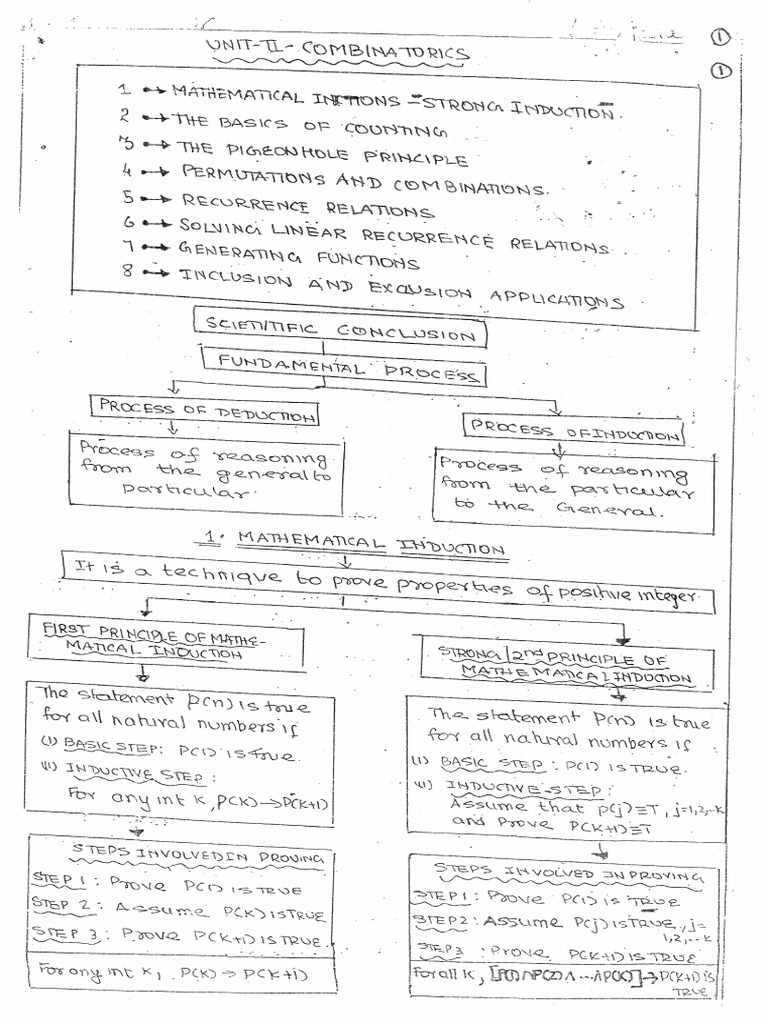 ①
UNIT-II-COMBINATORICS
①
1 → MATHEMATICAL INCTIONS - STRONG INDUCTION.
2 → THE BASICS OF COUNTING
3 → THE PIGEONHOLE PRINCIPLE
4 → PERMUTATIONS AND COMBINATIONS.
5 → RECURRENCE RELATIONS
6 → SOLVING LINEAR RECURRENCE RELATIONS
7 → GENERATING FUNCTIONS
8 → INCLUSION AND EXCUSION APPLICATIONS
SCIENTITIFIC CONCLUSION
FUNDAMENTAL PROCESS
PROCESS OF DEDUCTION
Process of reasoning
from the general to
particular.
PROCESS OF INDUCTION
Process of reasoning
from the particular
to the General.
1. MATHEMATICAL INDUCTION
It is a technique to prove properties of positive integer.
FIRST PRINCIPLE OF MATHE-
MATICAL INDUCTION
The statement P(n) is true
for all natural numbers if
(i) BASIC STEP: P(1) is true.
(ii) INDUCTIVE STEP:
For any int K, P(K)→P(K+1)
STEPS INVOLVED IN PROVING
STEP 1: Prove P(1) is TRUE
STEP 2: Assume P(K) is TRUE
STEP 3: Prove P(K+1) IS TRUE.
For any int K, P(K) ⇒ P(K+1)
STRONG/2nd PRINCIPLE OF
MATHEMATICAL INDUCTION
The statement P(n) is true
for all natural numbers if
(i) BASIC STEP: P(1) IS TRUE.
(ii) INDUCTIVE-STEP:
Assume that P(j)≡T, j=1,2,..K
and Prove P(K+1)≡T
STEPS INVOLVED IN PROVING
STEP1: Prove P(1) is TRUE
STEP2: Assume P(j) is TRUE, j=
1,2,..K
STEP3 : Prove P(K+1) IS TRUE.
For all K, [P(1)∧P(2)∧...∧P(K)]→P(K+1) is
TRUE